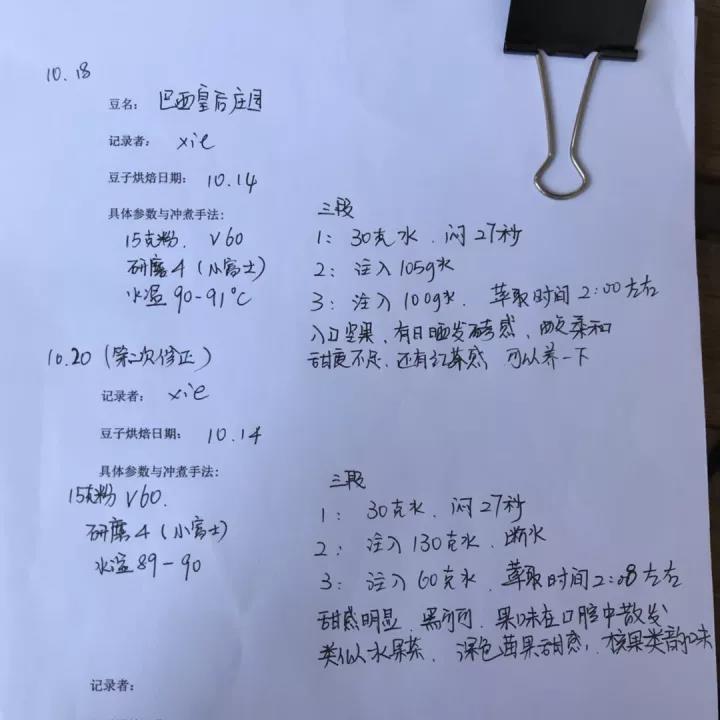 10.18
豆名： 巴西皇后庄园
记录者： xie
豆子烘焙日期： 10.14
具体参数与冲煮手法：
15克粉. V60
研磨4（小富士）
水温90-91°C
三段
1： 30克水. 闷27秒
2： 注入105g水
3： 注入100g水. 萃取时间2:00左右
入口坚果，有日晒发酵感，酸柔和
甜度不足，还有红茶感，可以养一下
10.20（第二次修正）
记录者： xie
豆子烘焙日期： 10.14
具体参数与冲煮手法：
15克粉V60.
研磨4（小富士）
水温89-90
三段
1： 30克水. 闷27秒
2： 注入130克水. 断水
3： 注入60克水. 萃取时间2:08左右
甜感明显. 黑可可. 果味在口腔中散发
类似水果茶. 深色莓果甜感，核果类韵味
记录者：